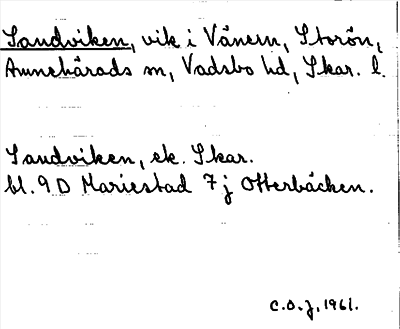 Sandviken, vik i Vänern, Storön,
Amnehärads sn, Vadsbo hd, Skar. l.
Sandviken, ek. Skar.
bl. 9D Mariestad 7j Otterbäcken.
C.O.J. 1961.